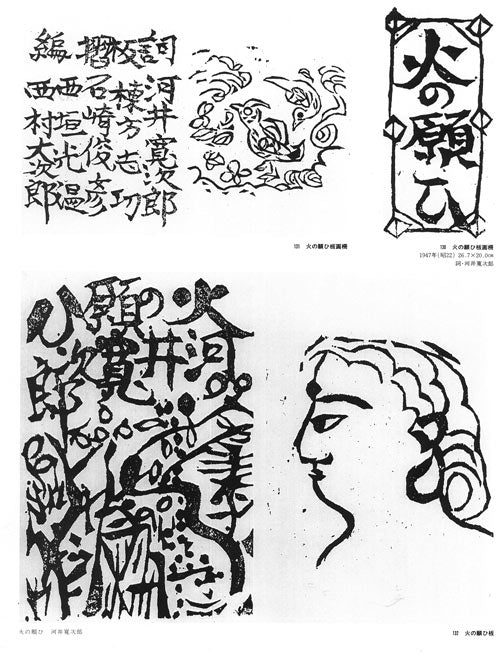 火の願ひ
詞 河井寛次郎
板 棟方志功
摺 石崎俊彦
編 西垣光温
西村大次郎
131 火の願ひ板画柵
130 火の願ひ板画柵
1947年(昭22) 26.7×20.0cm
詞・河井寛次郎
火の願ひ
河井寛次郎
火の願ひ 河井寛次郎
132 火の願ひ板